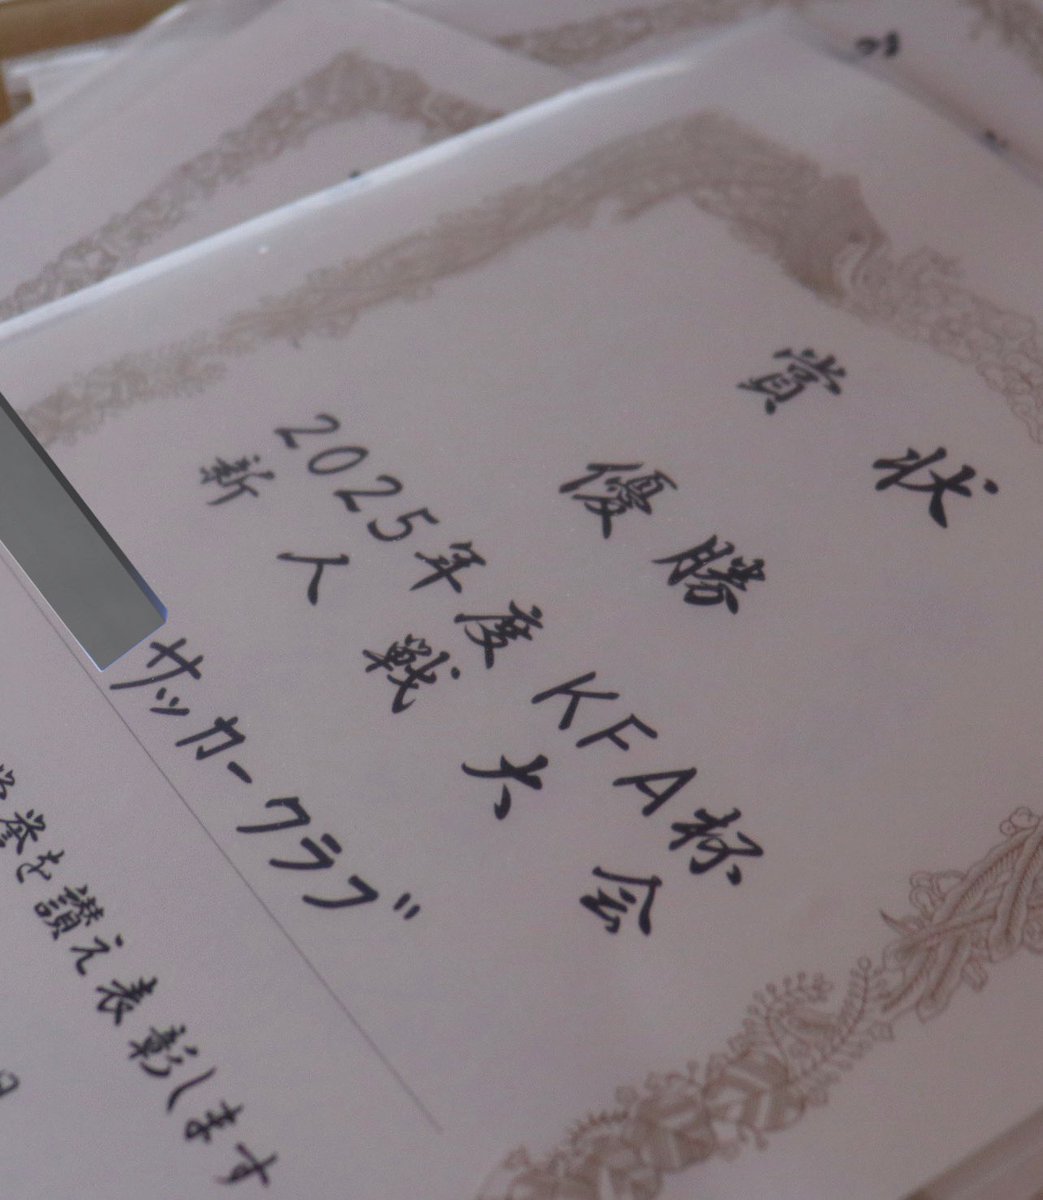 賞状
優勝
2025年度KFA杯
新人戦大会
サッカークラブ
誉を讃え表彰します